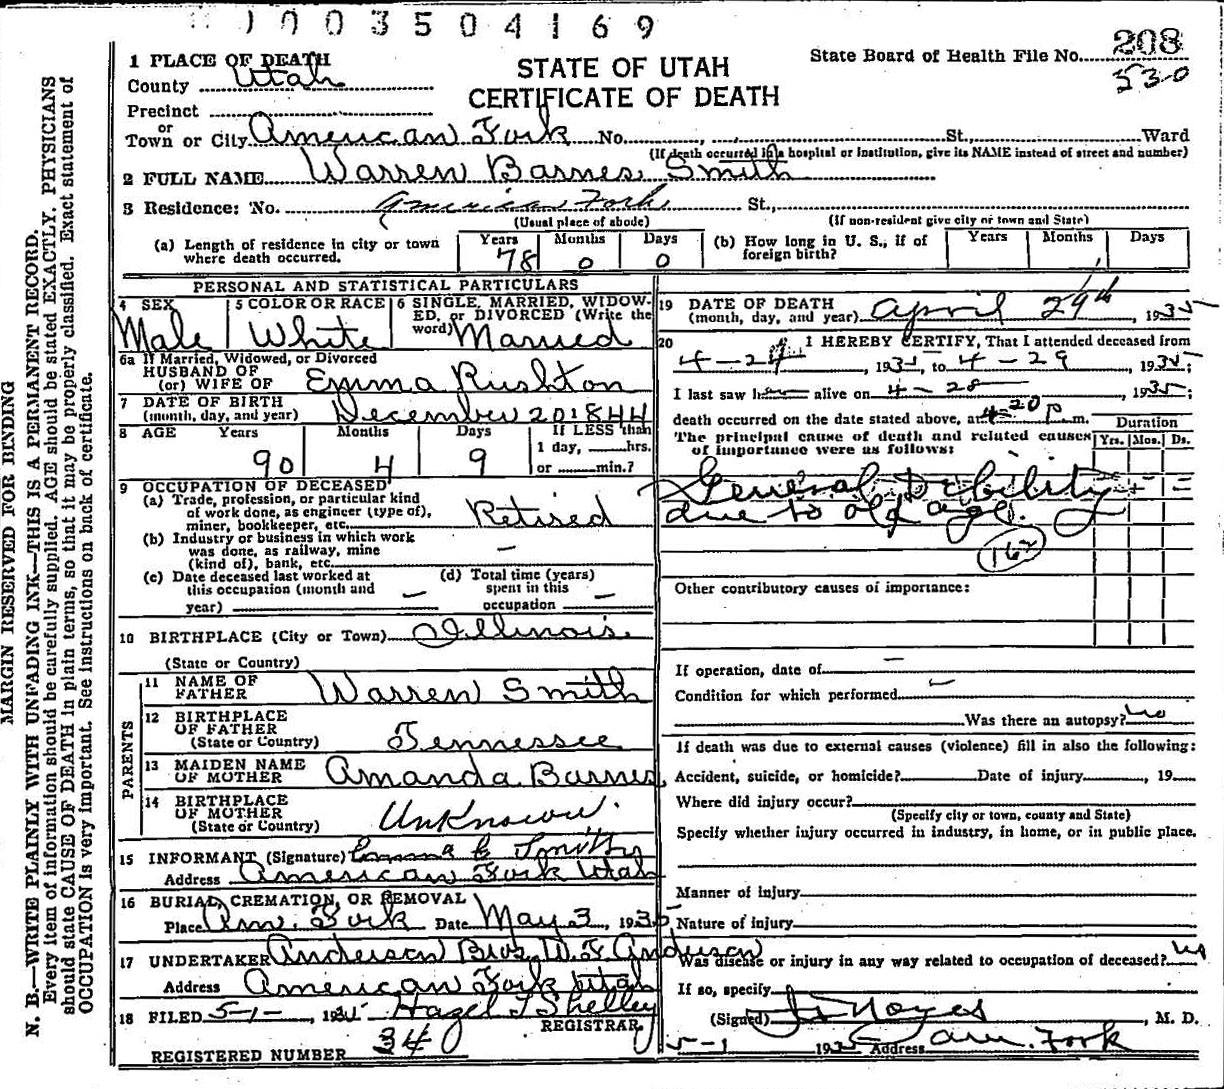 1003504169
State Board of Health File No. 208
530
STATE OF UTAH
CERTIFICATE OF DEATH
1 PLACE OF DEATH
County Utah
Precinct
or
Town or City American Fork No. St., Ward
(If death occurred in a hospital or institution, give its NAME instead of street and number)
2 FULL NAME Warren Barnes Smith
3 Residence: No. American Fork St.,
(Usual place of abode) (If non-resident give city or town and State)
(a) Length of residence in city or town where death occurred. Years 78 Months 0 Days 0
(b) How long in U. S., if of foreign birth? Years Months Days
PERSONAL AND STATISTICAL PARTICULARS
4 SEX Male
5 COLOR OR RACE White
6 SINGLE, MARRIED, WIDOWED, or DIVORCED (Write the word) Married
6a If Married, Widowed, or Divorced
HUSBAND OF
(or) WIFE OF Emma Rushton
7 DATE OF BIRTH
(month, day, and year) December 20 1844
8 AGE Years 90 Months 4 Days 9
If LESS than
1 day, hrs.
or min.?
9 OCCUPATION OF DECEASED
(a) Trade, profession, or particular kind
of work done, as engineer (type of),
miner, bookkeeper, etc. Retired
(b) Industry or business in which work
was done, as railway, mine
(kind of), bank, etc. —
(c) Date deceased last worked at
this occupation (month and
year) —
(d) Total time (years)
spent in this
occupation —
10 BIRTHPLACE (City or Town) Illinois
(State or Country)
PARENTS
11 NAME OF
FATHER Warren Smith
12 BIRTHPLACE
OF FATHER
(State or Country) Tennessee
13 MAIDEN NAME
OF MOTHER Amanda Barnes
14 BIRTHPLACE
OF MOTHER
(State or Country) Unknown.
15 INFORMANT (Signature) Emma Smith
Address American Fork Utah
16 BURIAL, CREMATION, OR REMOVAL
Place Am. Fork Date May 3, 1935
17 UNDERTAKER Anderson Bros. W. F. Anderson
Address American Fork Utah
18 FILED 5-1-, 1935 Hazel J Shelley
REGISTRAR
REGISTERED NUMBER 34
19 DATE OF DEATH
(month, day, and year) April 29th, 1935
20 I HEREBY CERTIFY, That I attended deceased from
4-24, 1935, to 4-29, 1935;
I last saw h alive on 4-28, 1935;
death occurred on the date stated above, at 4 20 p.m.
The principal cause of death and related causes
of importance were as follows:
Duration
Yrs. Mos. Ds.
General Debility
due to old age.
162
Other contributory causes of importance:
If operation, date of —
Condition for which performed —
Was there an autopsy? no
If death was due to external causes (violence) fill in also the following:
Accident, suicide, or homicide? Date of injury, 19
Where did injury occur?
(Specify city or town, county and State)
Specify whether injury occurred in industry, in home, or in public place.
Manner of injury
Nature of injury
Was disease or injury in any way related to occupation of deceased? no
If so, specify
(Signed) Noyes, M. D.
5-1 1935 Address Am. Fork
MARGIN RESERVED FOR BINDING
N. B.—WRITE PLAINLY WITH UNFADING INK—THIS IS A PERMANENT RECORD.
Every item of information should be carefully supplied. AGE should be stated EXACTLY. PHYSICIANS
should state CAUSE OF DEATH in plain terms, so that it may be properly classified. Exact statement of
OCCUPATION is very important. See instructions on back of certificate.